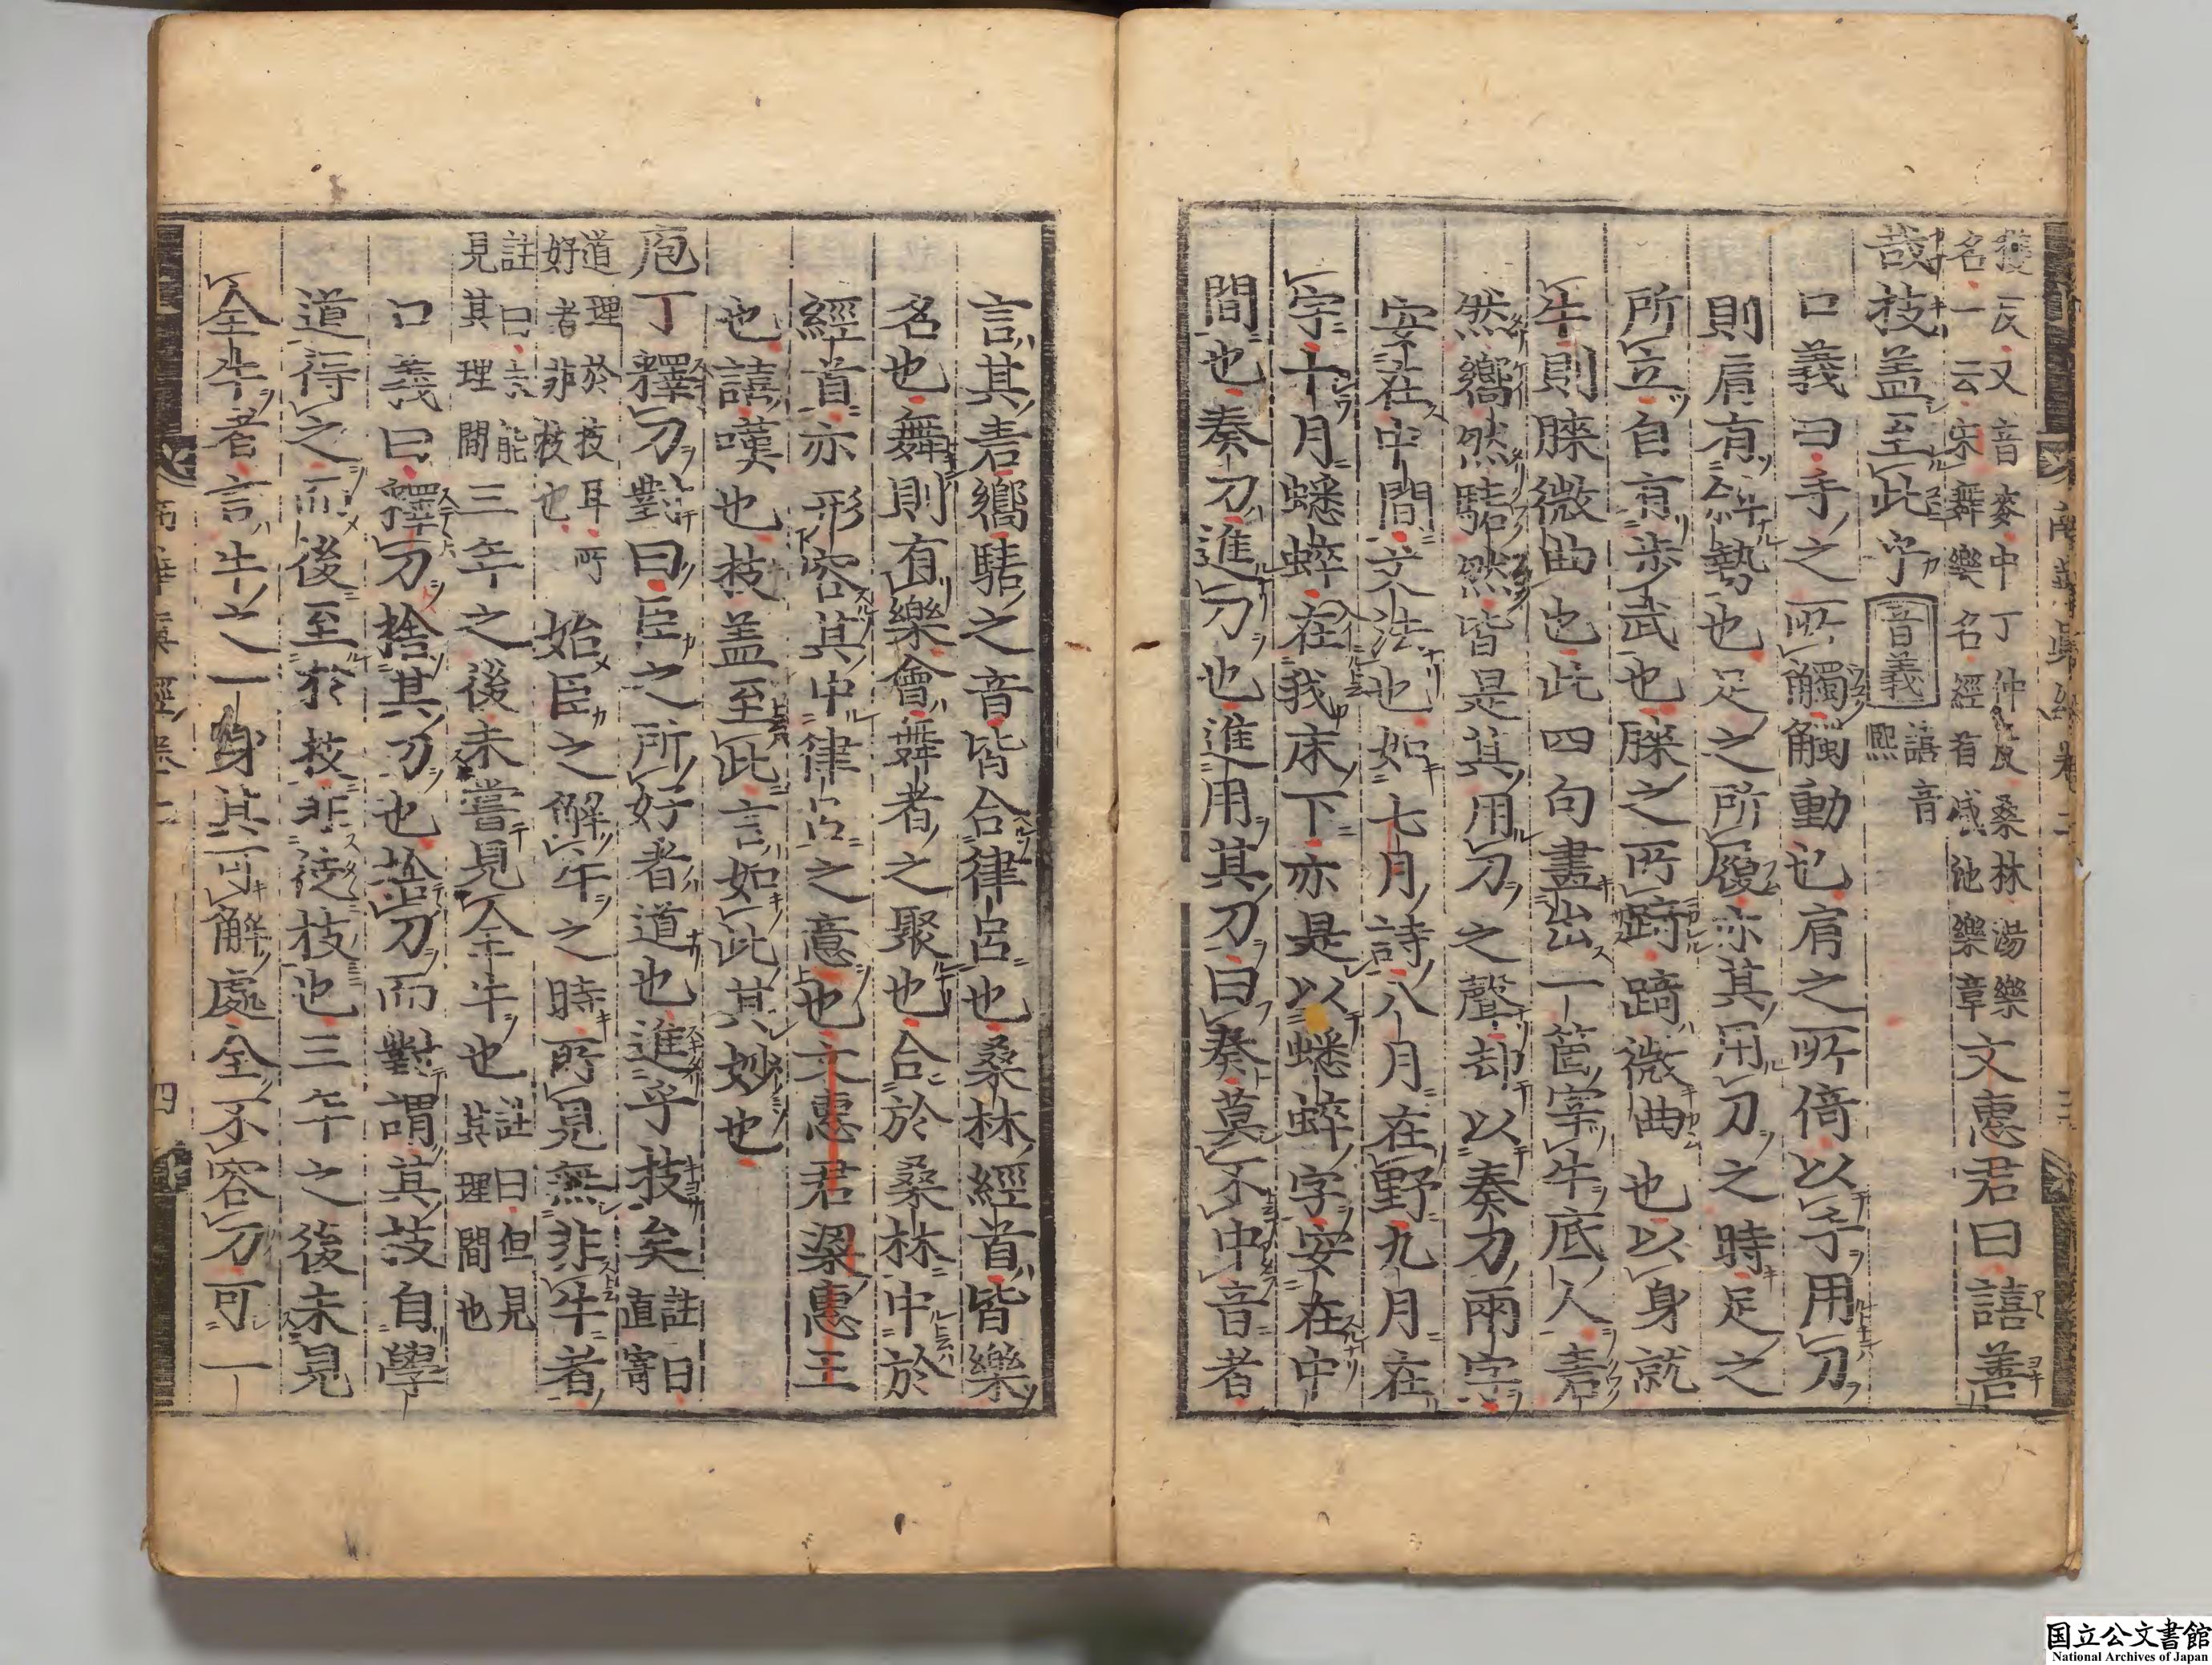 獲二反又音麥中丁仲反桑林湯樂
名一云宋舞樂名經首咸池樂章文惠君曰譆善
哉技盖至此乎音義譆音熙
口義曰手之所觸觸動也肩之所倚以手用刀
則肩有斜勢也足之所履亦其用刀之時足之
所立自有步武也膝之所踦踦微曲也以身就
牛則膝微曲也此四句畫出一箇宰牛底人砉
然嚮然騞然皆是其用刀之聲却以奏刀兩字
安在中間文法也如七月詩八月在野九月在
宇十月蟋蟀在我床下亦是以蟋蟀字安在中
間也奏刀進刀也進用其刀曰奏莫不中音者
言其砉嚮騞之音皆合律呂也桑林經首皆樂
名也舞則有樂會舞者之聚也合於桑林中於
經首亦形容其中律呂之意也文惠君梁惠王
也譆嘆也技盖至此言如此其妙也
庖丁釋刀對曰臣之所好者道也進乎技矣註曰直寄
道理於技耳所好者非技也始臣之解牛之時所見無非牛者
註曰言能見其理間三年之後未嘗見全牛也註曰但見其理間也
口義曰釋刀捨其刀也捨刀而對謂其技自學
道得之而後至於技非徒技也三年之後未見
全牛者言牛之一身其可解處全不容刀可一
南華眞經卷二 四
国立公文書館
National Archives of Japan